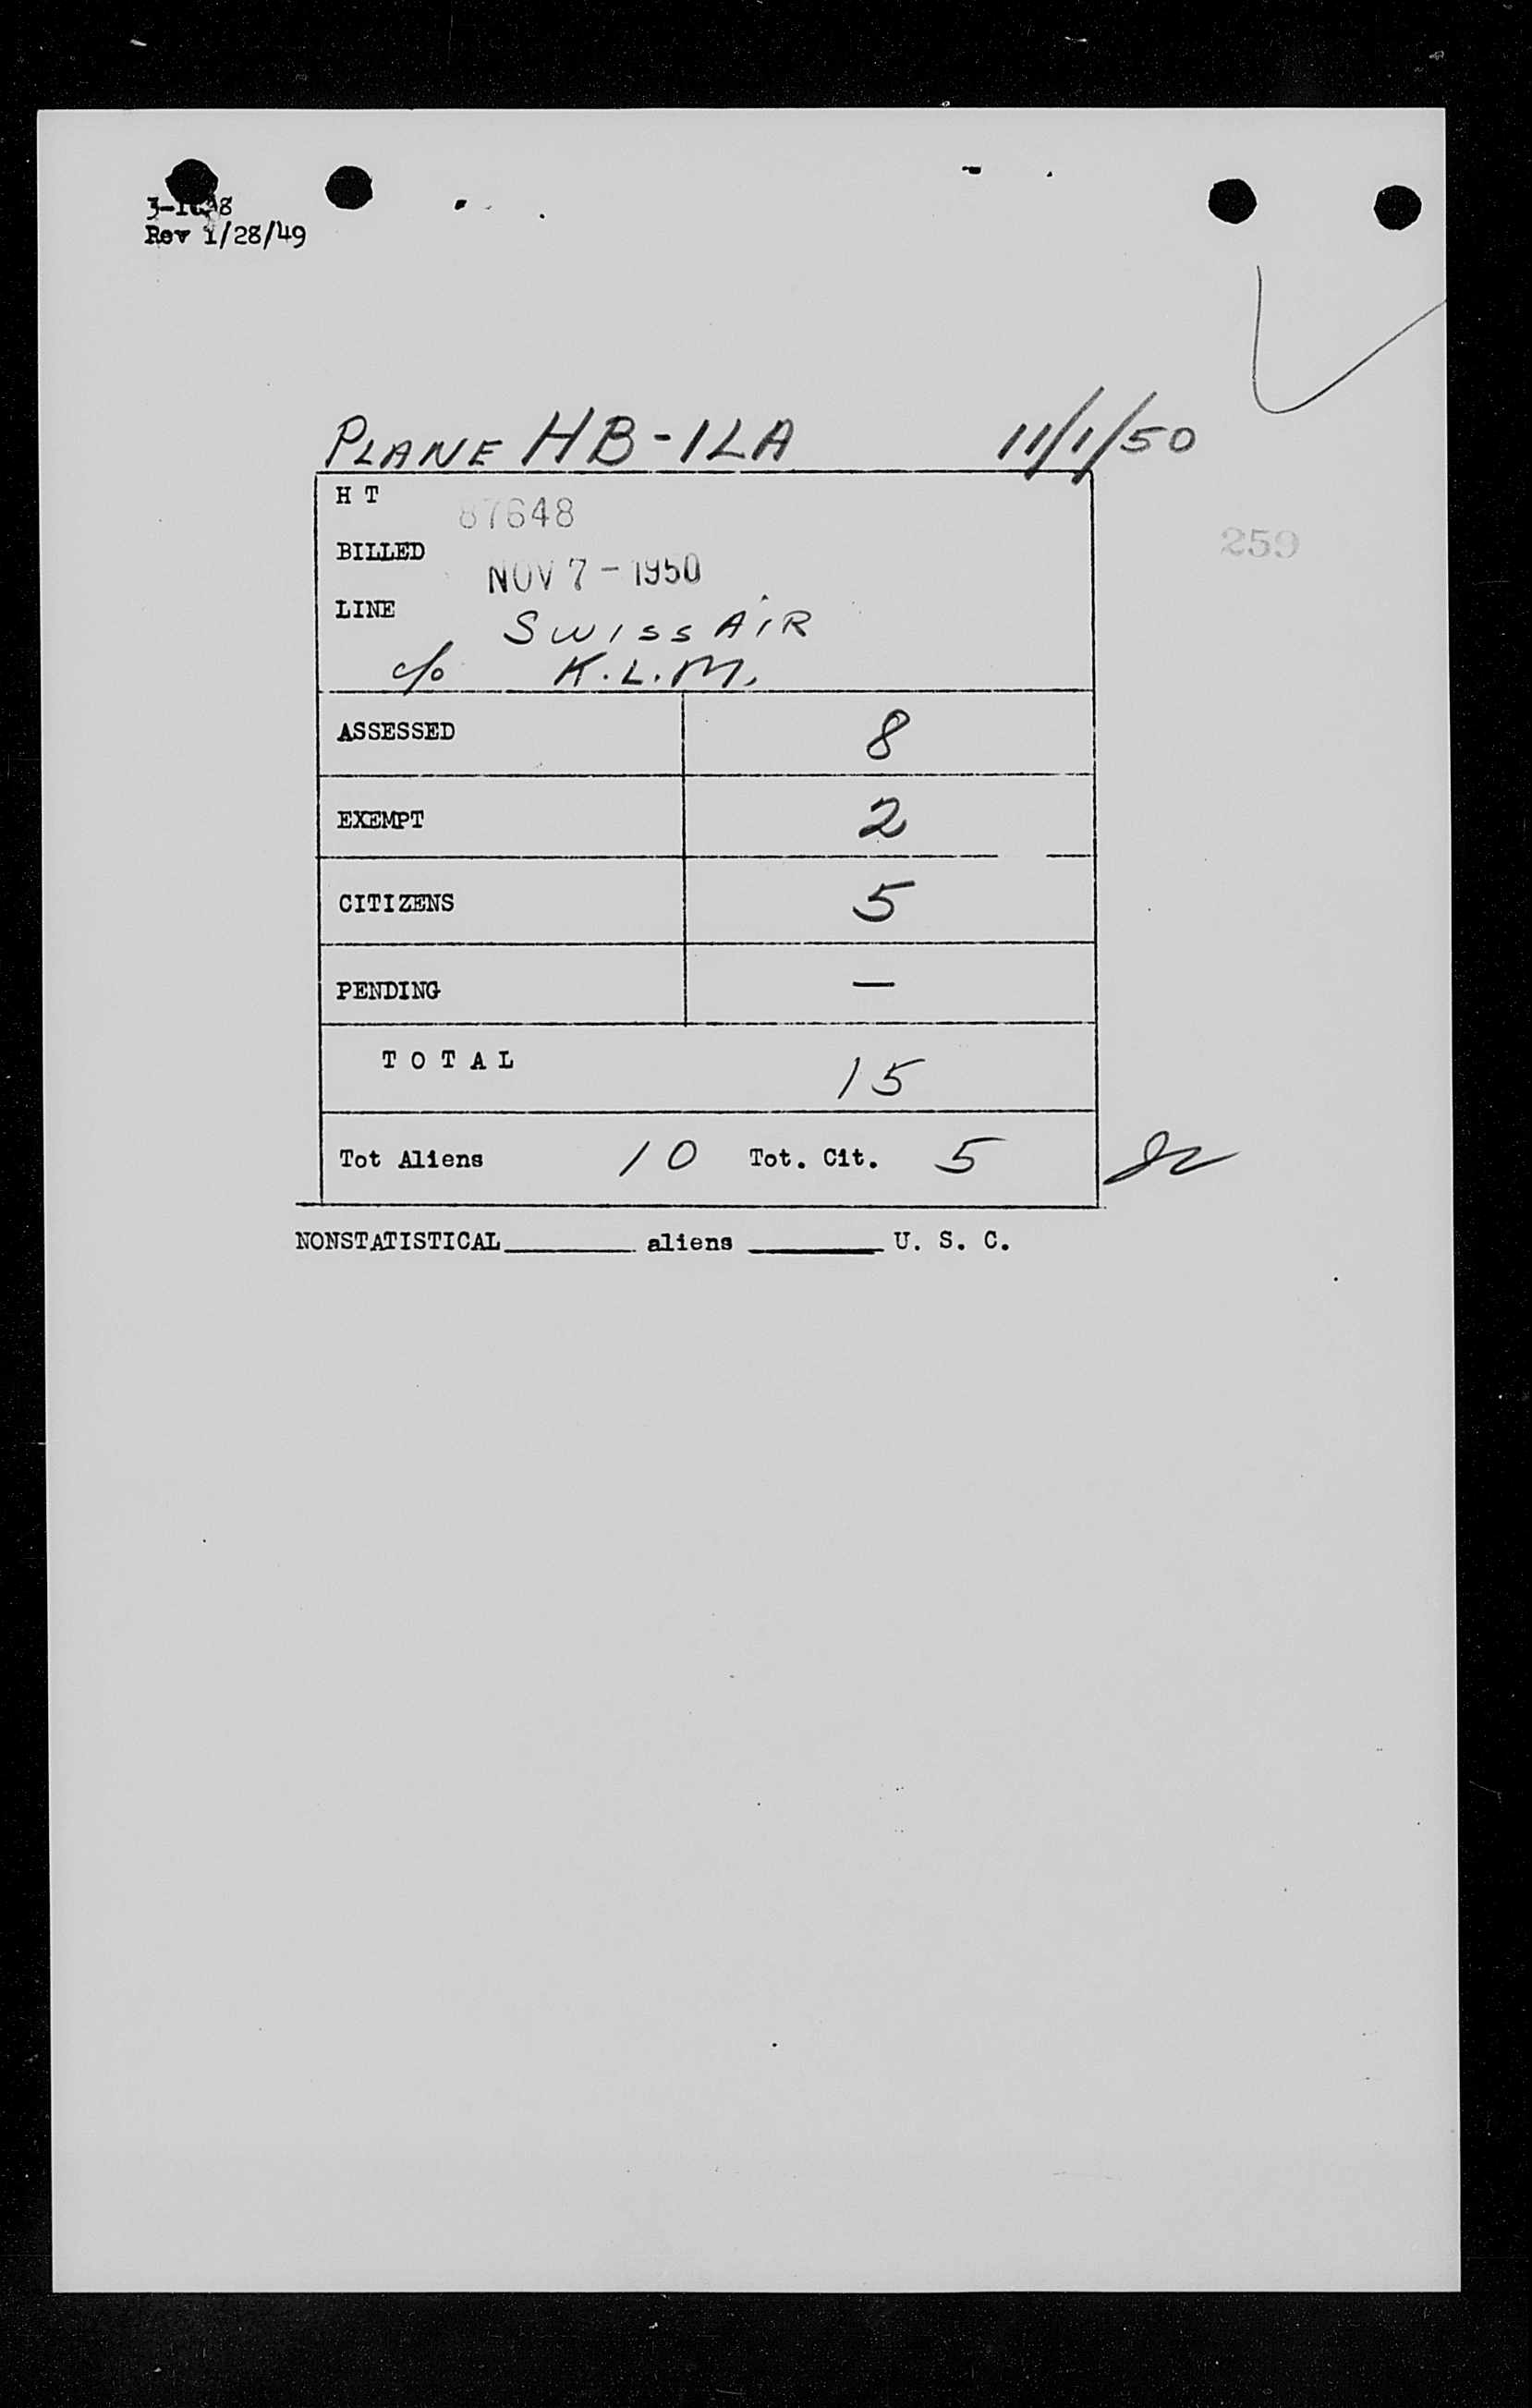 Rev 1/28/49
PLANE HB-ILA 11/1/50
H T 87648
259
BILLED NOV 7 - 1950
LINE SWISSAIR
c/o K.L.M.
ASSESSED 8
EXEMPT 2
CITIZENS 5
PENDING —
TOTAL 15
Tot Aliens 10 Tot. Cit. 5
NONSTATISTICAL_____ aliens _____ U. S. C.